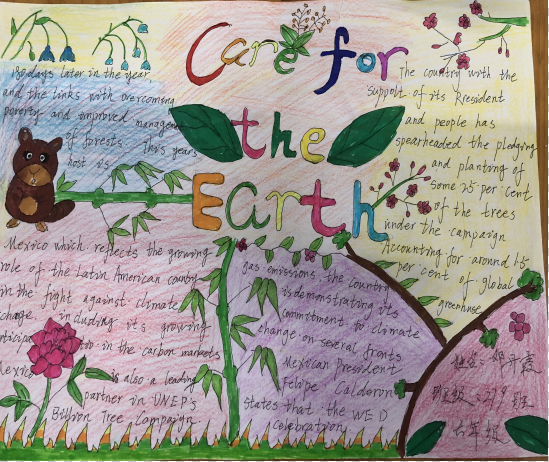 Care for
the
Earth
180 days later in the year
and the links with overcoming
poverty and improved management
of forests. This years
host is
Mexico which reflects the growing
role of the Latin American country
in the fight against climate
change including it's growing
in the carbon markets
Mexico is also a leading
partner in UNEP's
Billion Tree Campaign
The country with the
support of its President
and people has
spearheaded the pledging
and planting of
some 25 per cent
of the trees
under the campaign
Accounting for around 1.5
per cent of global
greenhouse
gas emissions the country
is demonstrating its
commitment to climate
change on several fronts
Mexican President
Felipe Calderon
states that the WED
celebration
班级:219班
六年级